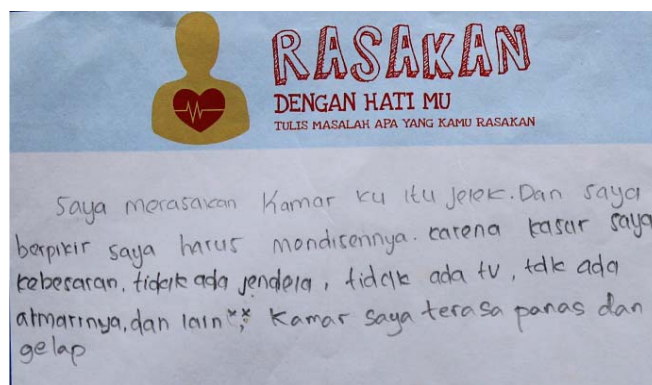 RASAKAN
DENGAN HATI MU
TULIS MASALAH APA YANG KAMU RASAKAN
Saya merasakan Kamar ku itu jelek. Dan saya
berpikir saya harus mendisennya. karena kasur saya
kebesaran, tidak ada jendela, tidak ada tv, tdk ada
almarinya, dan lain", Kamar saya terasa panas dan
gelap